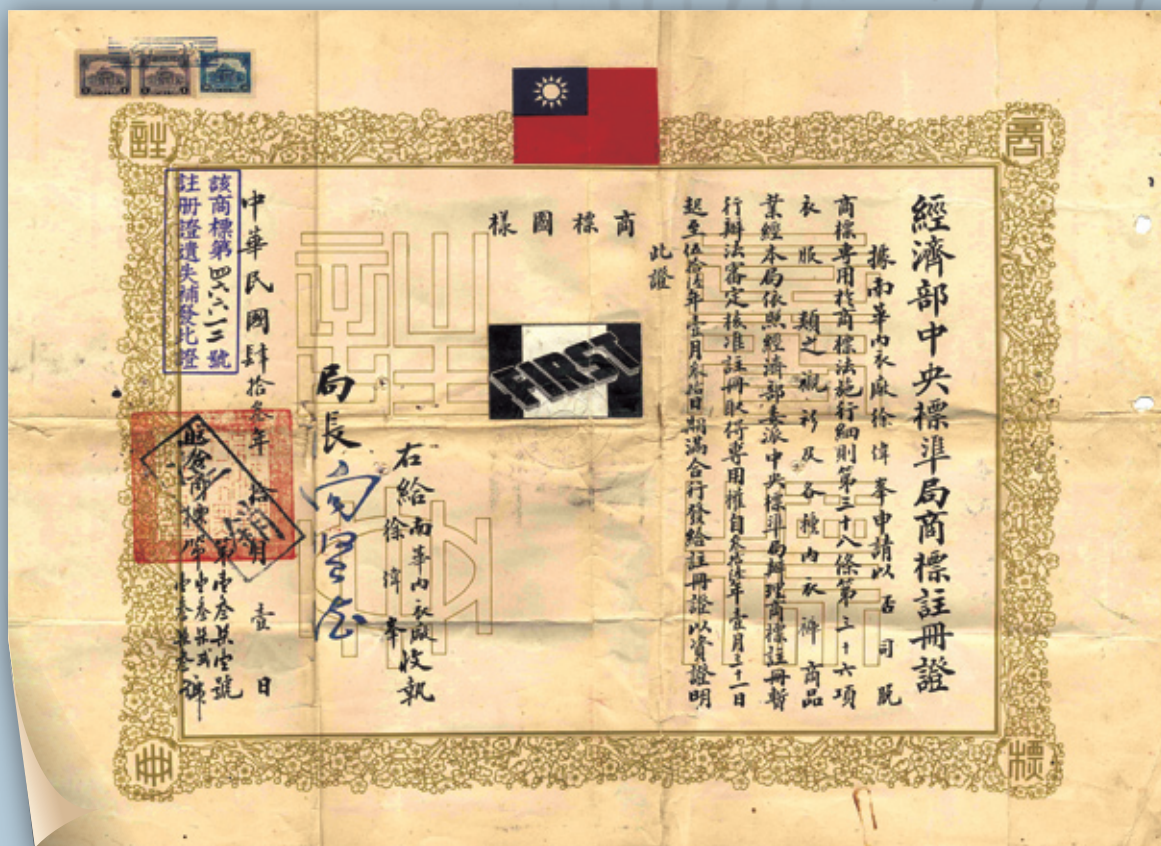 經濟部中央標準局商標註冊證
據南華內衣廠徐偉峯申請以
商標專用於商標法施行細則第三十八條第三十六項
衣服類之襯衫及各種內衣褲商品
業經本局依照經濟部委派中央標準局辦理商標註冊暫
行辦法審定核准註冊取得專用權自
年壹月三十一日
起至伍拾
年壹月叁拾日期滿合行發給註冊證以資證明
此證
商標圖樣
FIRST
右給南華內衣廠
徐偉峯
收執
局長
中華民國肆拾叁年拾
月壹日
該商標第
號
註冊證遺失補發此證
商
標
註
冊